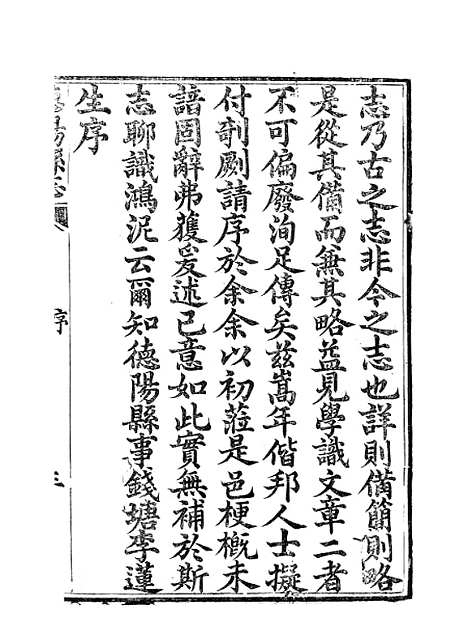 志乃古之志非今之志也詳則備簡則略
是從其備而兼其略益見學識文章二者
不可偏廢洵足傳矣茲嵩年偕邦人士擬
付剞劂請序於余余以初蒞是邑梗概未
諳固辭弗獲爰述已意如此實無補於斯
志聊識鴻泥云爾知德陽縣事錢塘李蓮
生序
陽縣志
序
三